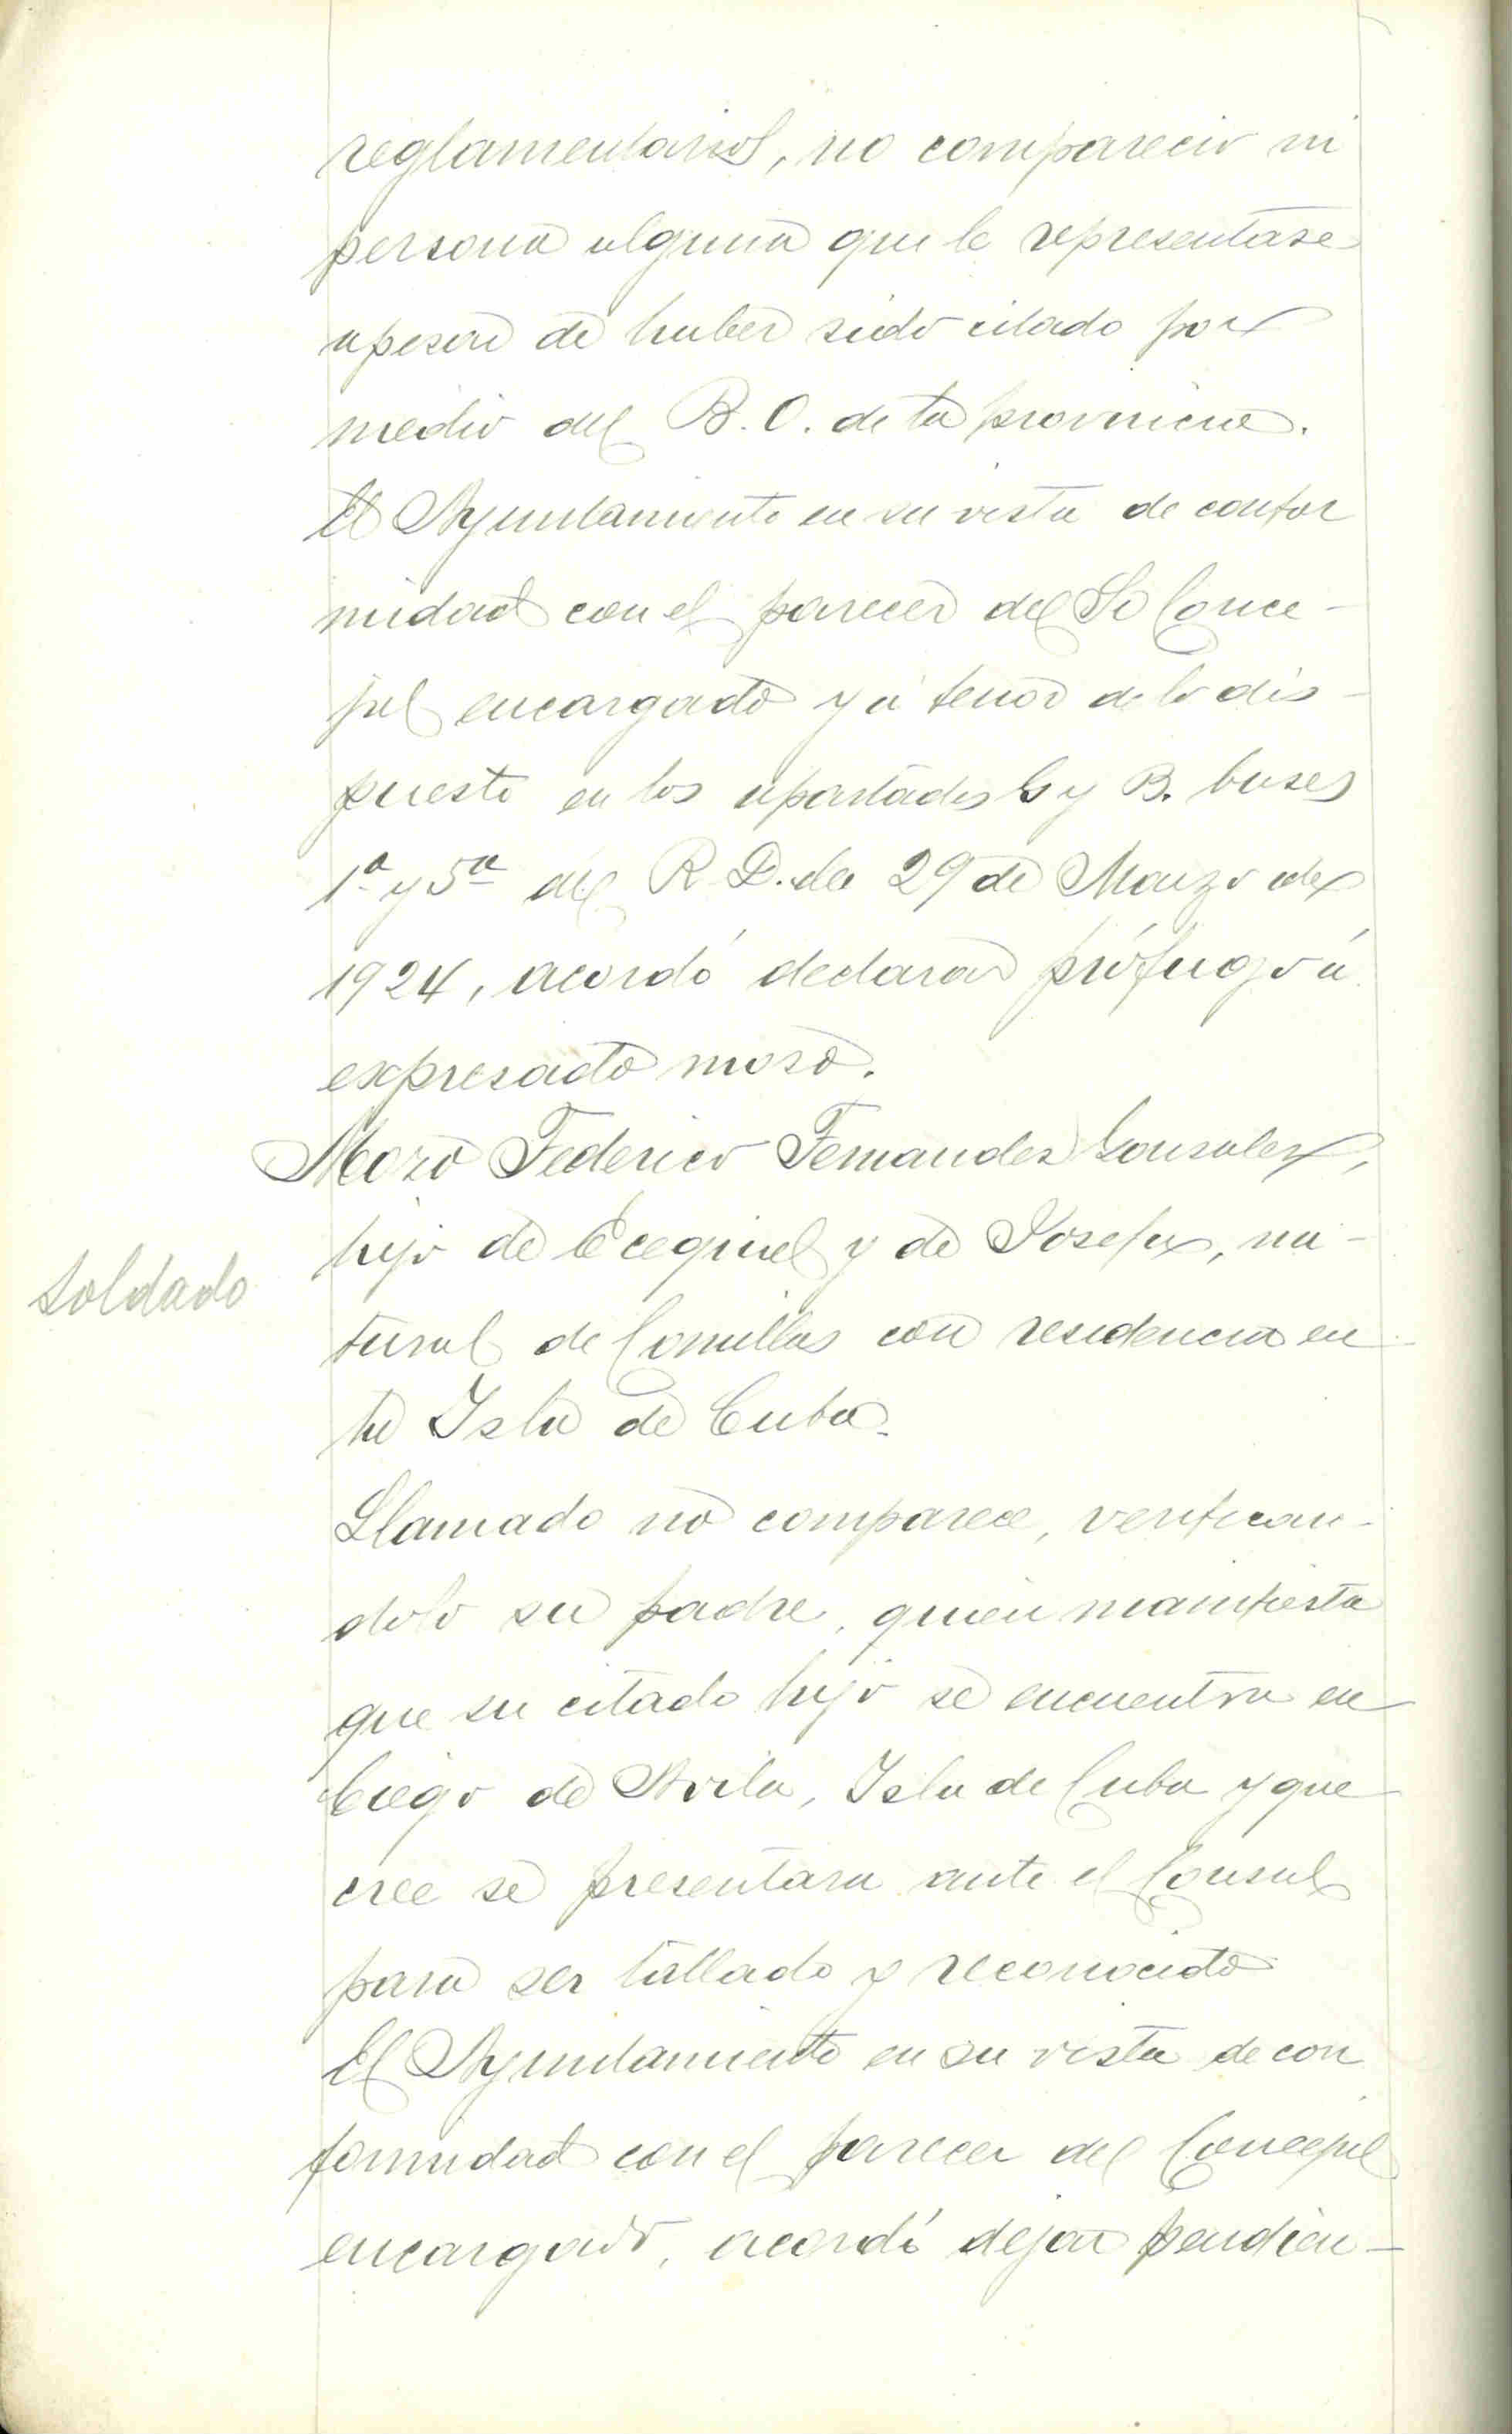 reglamentarios, no comparecio ni
persona alguna que le representase
apesar de haber sido citado por
medio del B. O. de la provincia.
El Ayuntamiento en su vista de confor
midad con el parecer del Sr Conce-
jal encargado y á tenor de lo dis-
puesto en los apartados G y B. bases
1ª y 5ª del R. D. de 29 de Marzo de
1924, acordó declarar prófugo á
expresado moso.
Mozo Federico Fernandez Gonsalez,
hijo de Ecequiel y de Josefa, na-
Soldado
tural de Comillas con residencia en
la Isla de Cuba.
Llamado no comparece, verifican-
dolo su padre, quien manifiesta
que su citado hijo se encuentra en
Ciego de Avila, Isla de Cuba y que
cree se presentara ante el Consul
para ser tallado y reconocido
El Ayuntamiento en su vista de con
formidad con el parecer del Concejal
encargado, acordó dejar pendien-